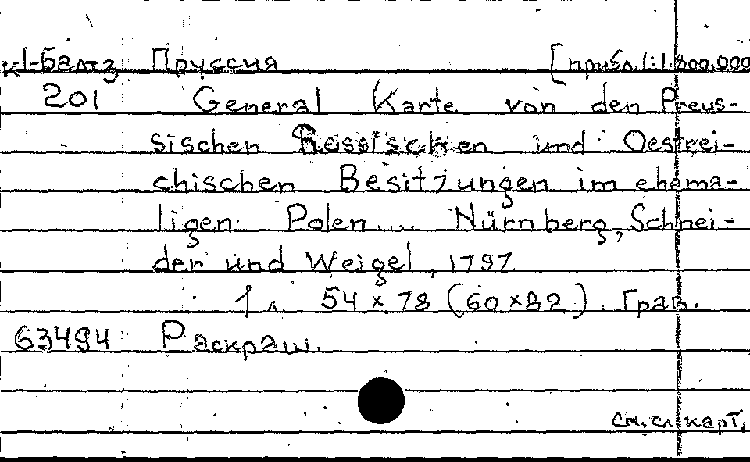 к1-Балтз Пруссия [прибл.1:1.800.000
201 General Karte von den Preus-
sischen Russischen und Oestrei-
chischen Besitzungen im ehema-
ligen Polen... Nürnberg, Schnei-
der und Weigel, 1797
1 л. 54 x 78 (60 x 82). Грав.
63494 Раскраш.
см. сл. карт.